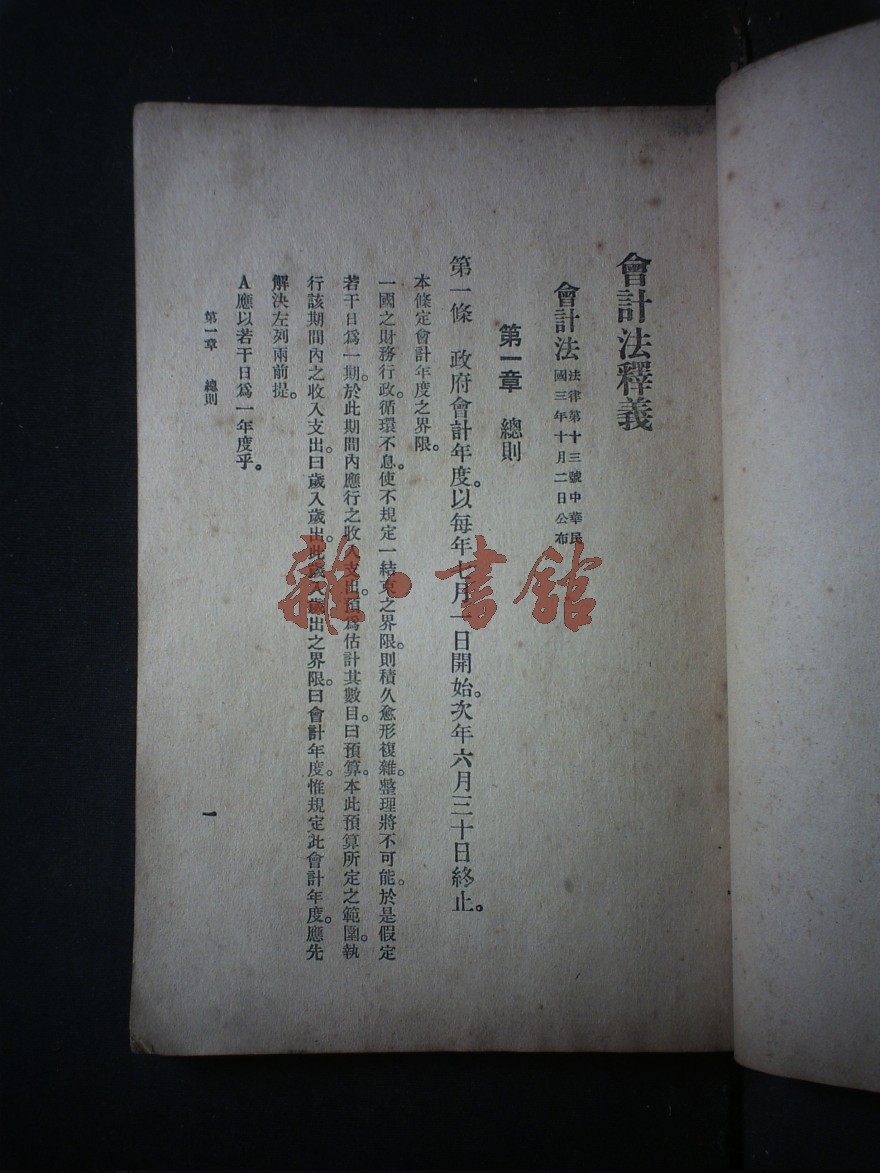 會計法釋義
會計法 法律第十三號中華民
國三年十月二日公布
第一章 總則
第一條 政府會計年度。以每年七月一日開始。次年六月三十日終止。
本條定會計年度之界限。
一國之財務行政。循環不息。使不規定一結束之界限。則積久愈形複雜。整理將不可能。於是假定
若干日爲一期。於此期間內應行之收入支出。預爲估計其數目。曰預算。本此預算所定之範圍。執
行該期間內之收入支出。曰歲入歲出。此歲入歲出之界限。曰會計年度。惟規定此會計年度。應先
解決左列兩前提。
A應以若干日爲一年度乎。
第一章 總則
一
雜·書館